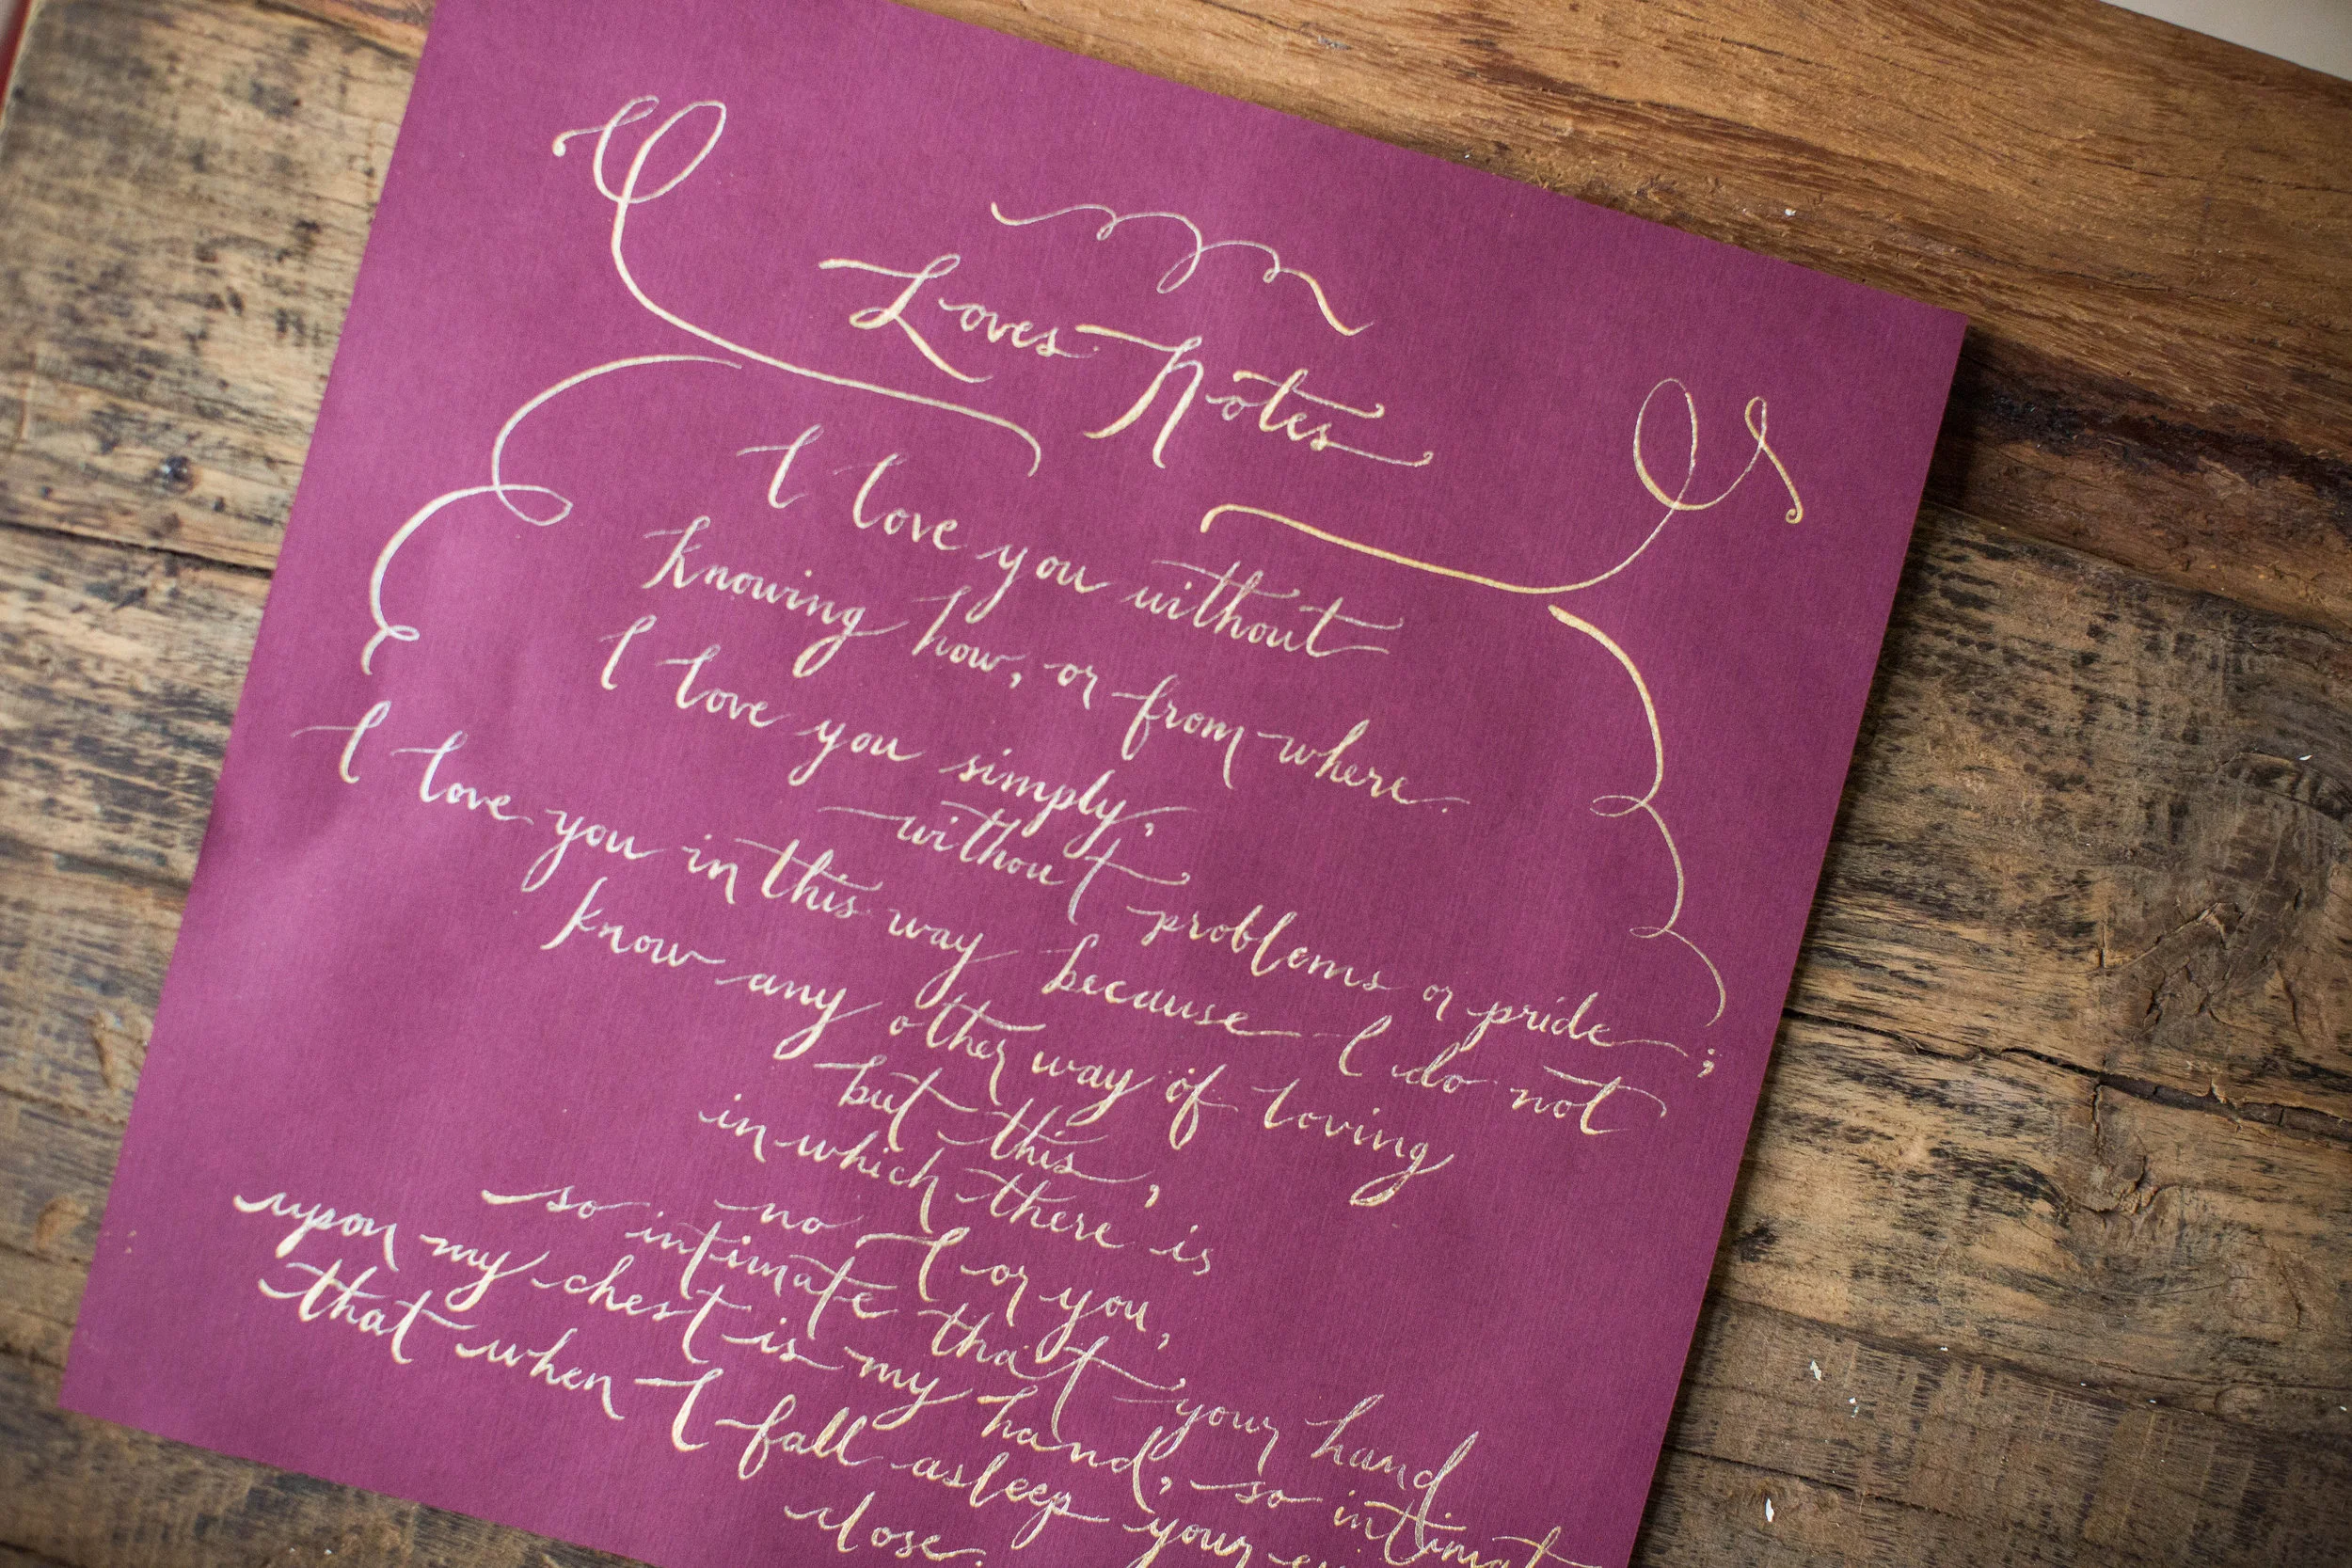 Loves Notes
I love you without
knowing how, or from where.
I love you simply,
without problems or pride;
I love you in this way because I do not
know any other way of loving
but this,
in which there is
no I or you,
so intimate that your hand
upon my chest is my hand, so intimat
that when I fall asleep your
close.